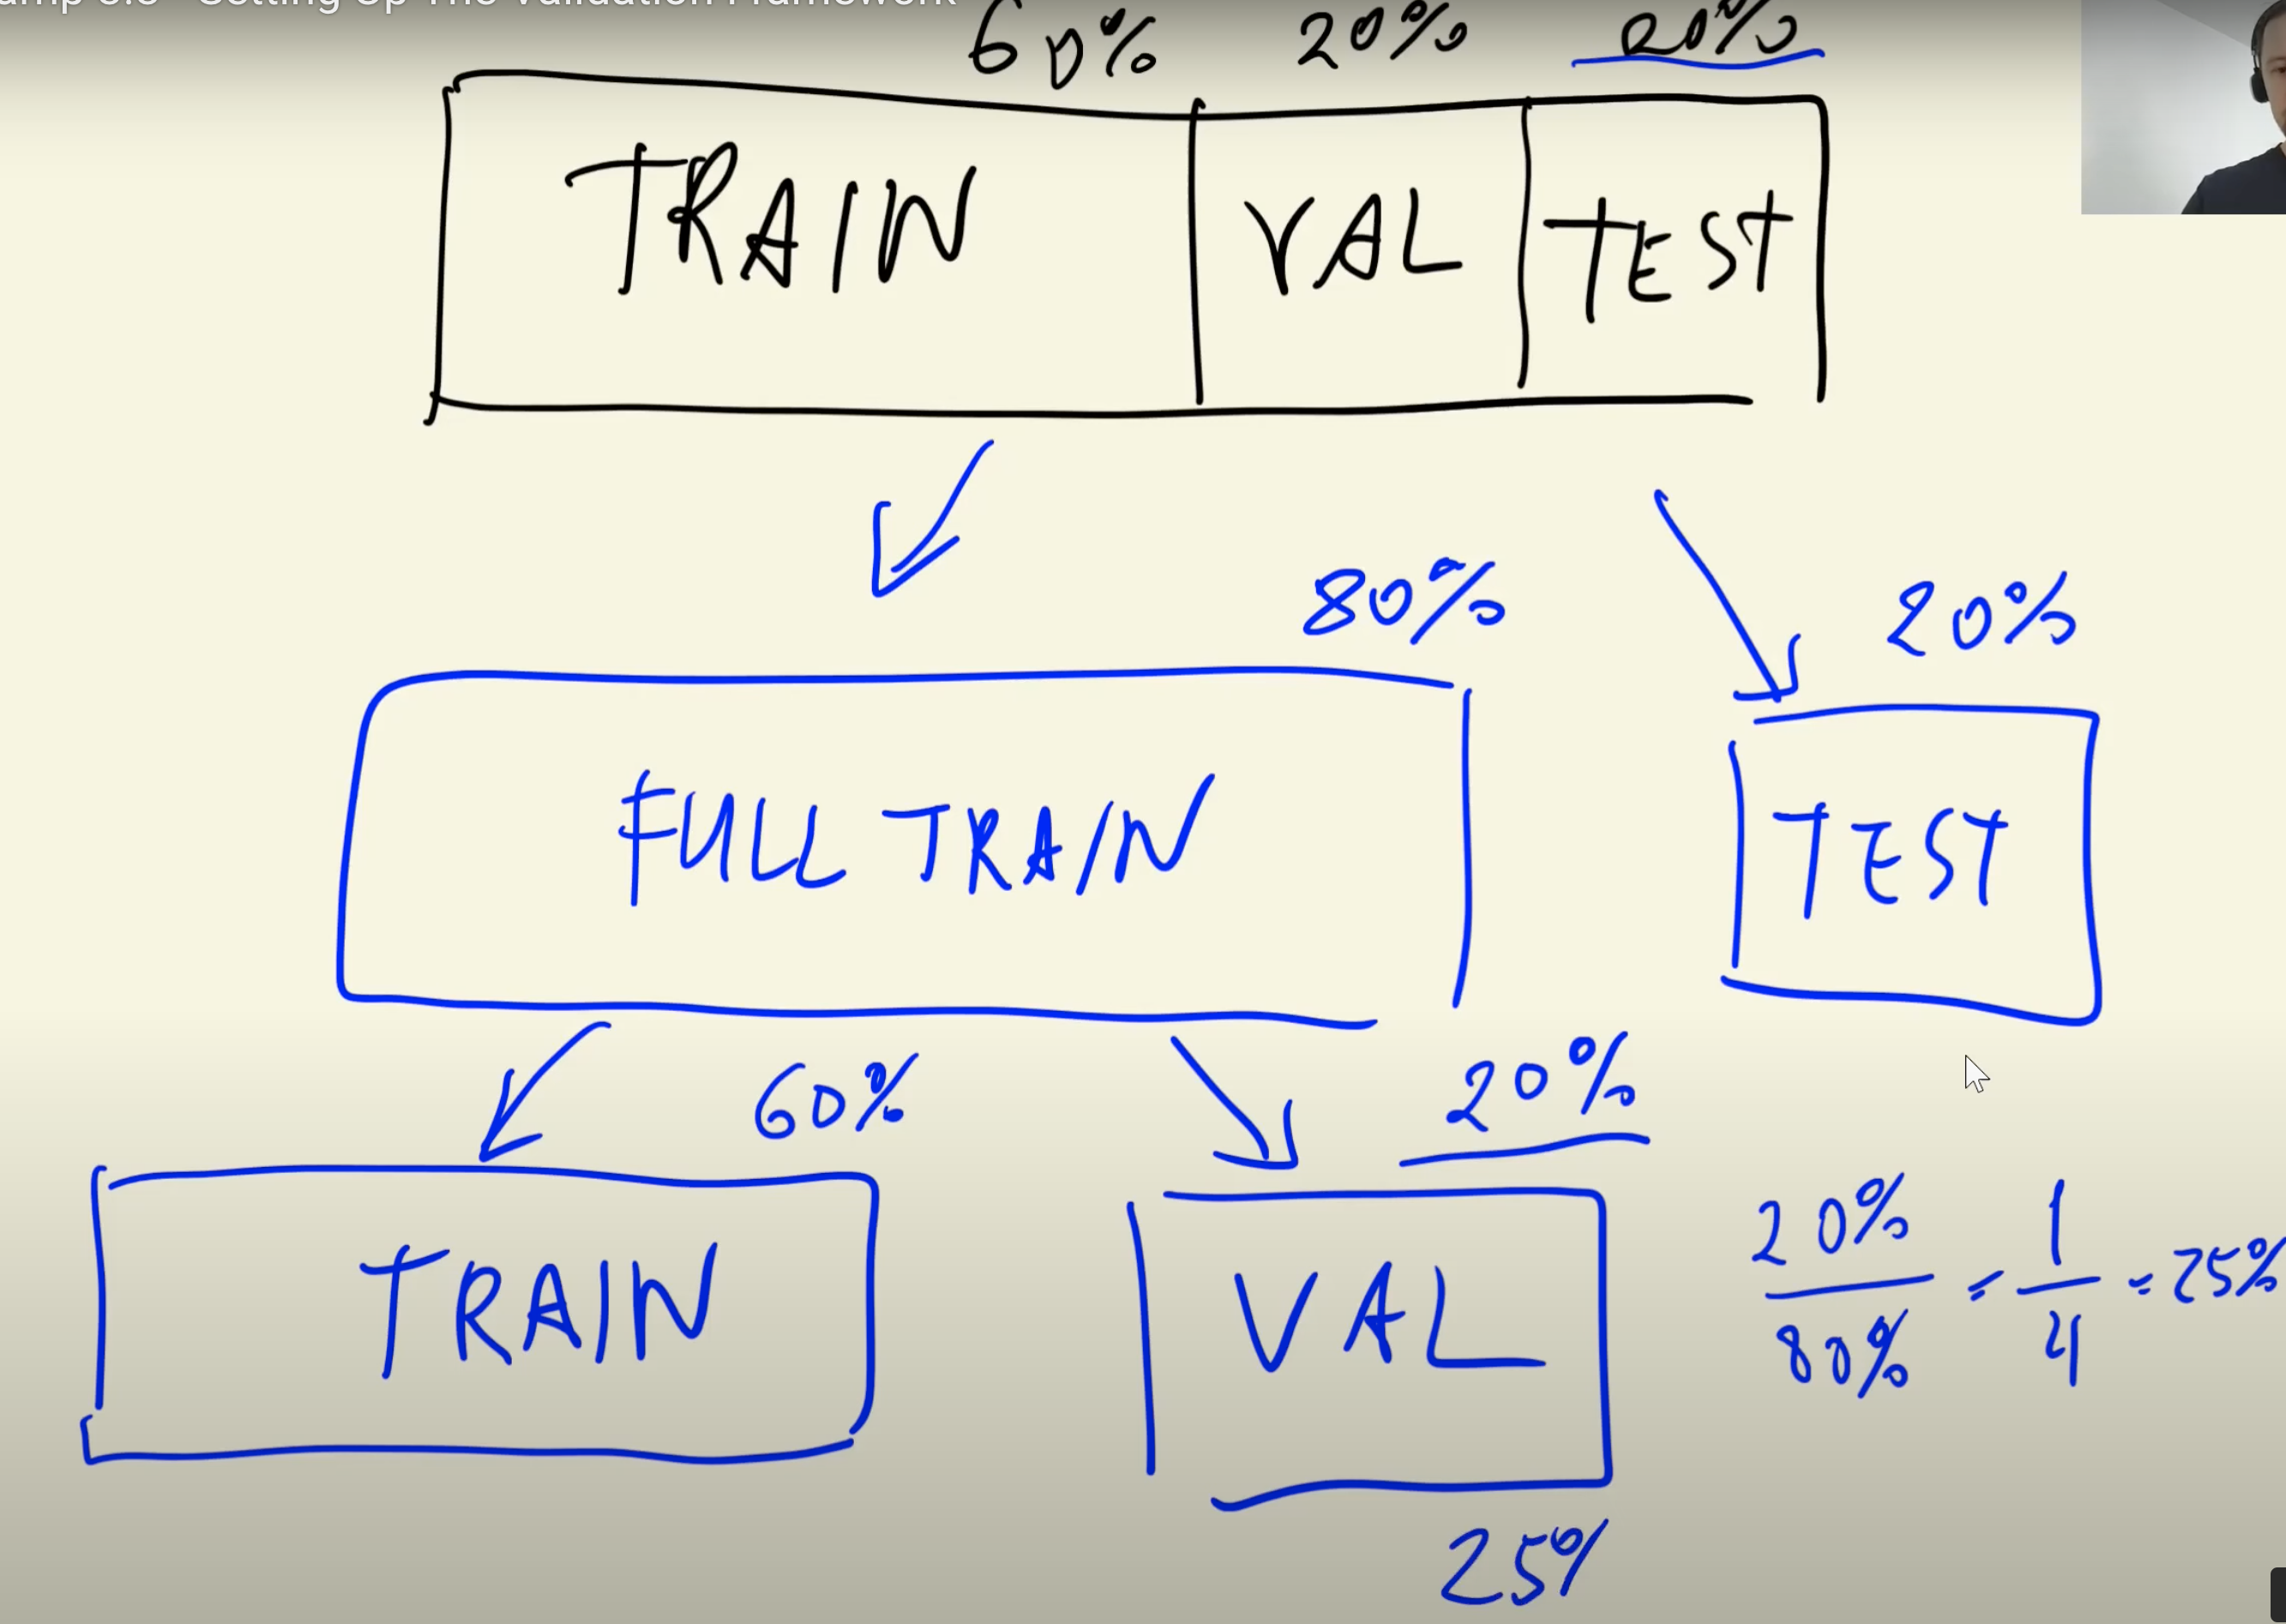 Setting Up The Validation Framework
60% 20% 20%
TRAIN VAL TEST
80% 20%
FULL TRAIN TEST
60% 20%
TRAIN VAL 20%/80% = 1/4 = 25%
25%